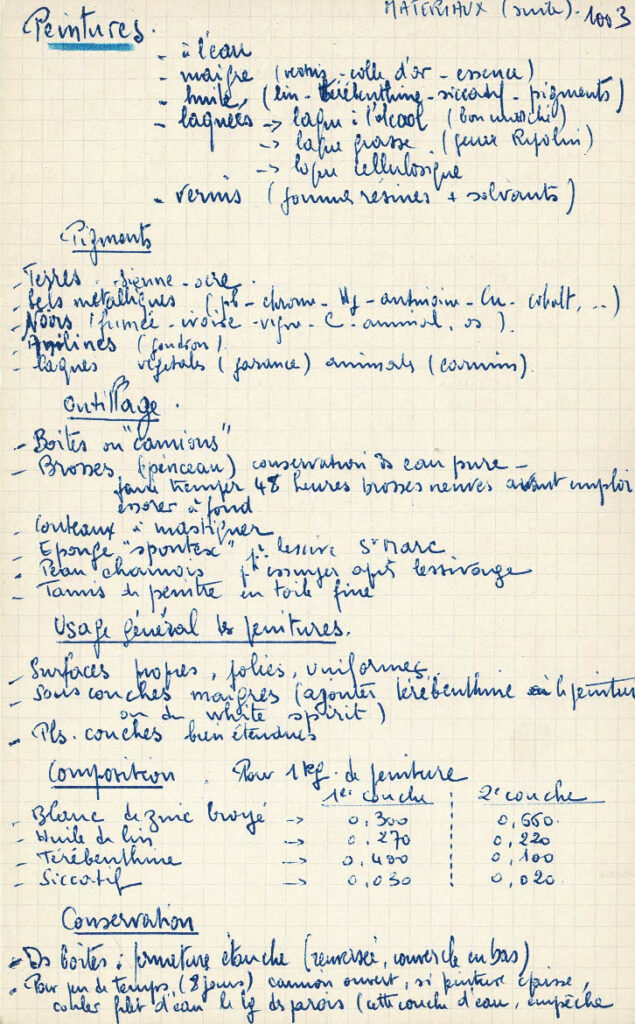 MATERIAUX (suite). 1003
Peintures.
- à l'eau
- maigre (vernis - colle d'or - essence)
- huile (lin - térébenthine - siccatif - pigments)
- laquées -> laque à l'alcool (bon marché)
-> laque grasse (genre Ripolin)
-> laque cellulosique
- vernis (gommes résines + solvants)
Pigments
- Terres - sienne - ocre.
- Sels métalliques (pb - chrome - Hg - antimoine - Cu - cobalt, ...)
- Noirs (fumée - ivoire - vigne - C - animal, os).
- Anilines (goudron).
- laques végétales (garance) animals (carmins).
Outillage.
- Boites ou "camions"
- Brosses (pinceau) conservation ds eau pure -
faire tremper 48 heures brosses neuves avant emploi
essorer à fond
- Couteaux à mastiquer
- Eponge "spontex" pr lessive St Marc
- Peau chamois pr essuyer après lessivage
- Tamis de peintre en toile fine
Usage général des peintures.
- Surfaces propres, polies, uniformes,
- Sous couches maigres (ajouter térébenthine à la peinture
ou du white spirit)
- Pls. couches bien étendues
Composition. Pour 1 kg. de peinture
1ere couche 2e couche
- Blanc de zinc broyé -> 0,300 0,660
- Huile de lin -> 0,270 0,220
- Térébenthine -> 0,400 0,100
- Siccatif -> 0,030 0,020
Conservation
- Ds boîtes : fermeture étanche (renversée, couvercle en bas)
- Pour peu de temps, (8 jours) camion ouvert, si peinture épaisse,
couler filet d'eau le lg des parois (cette couche d'eau, empêche